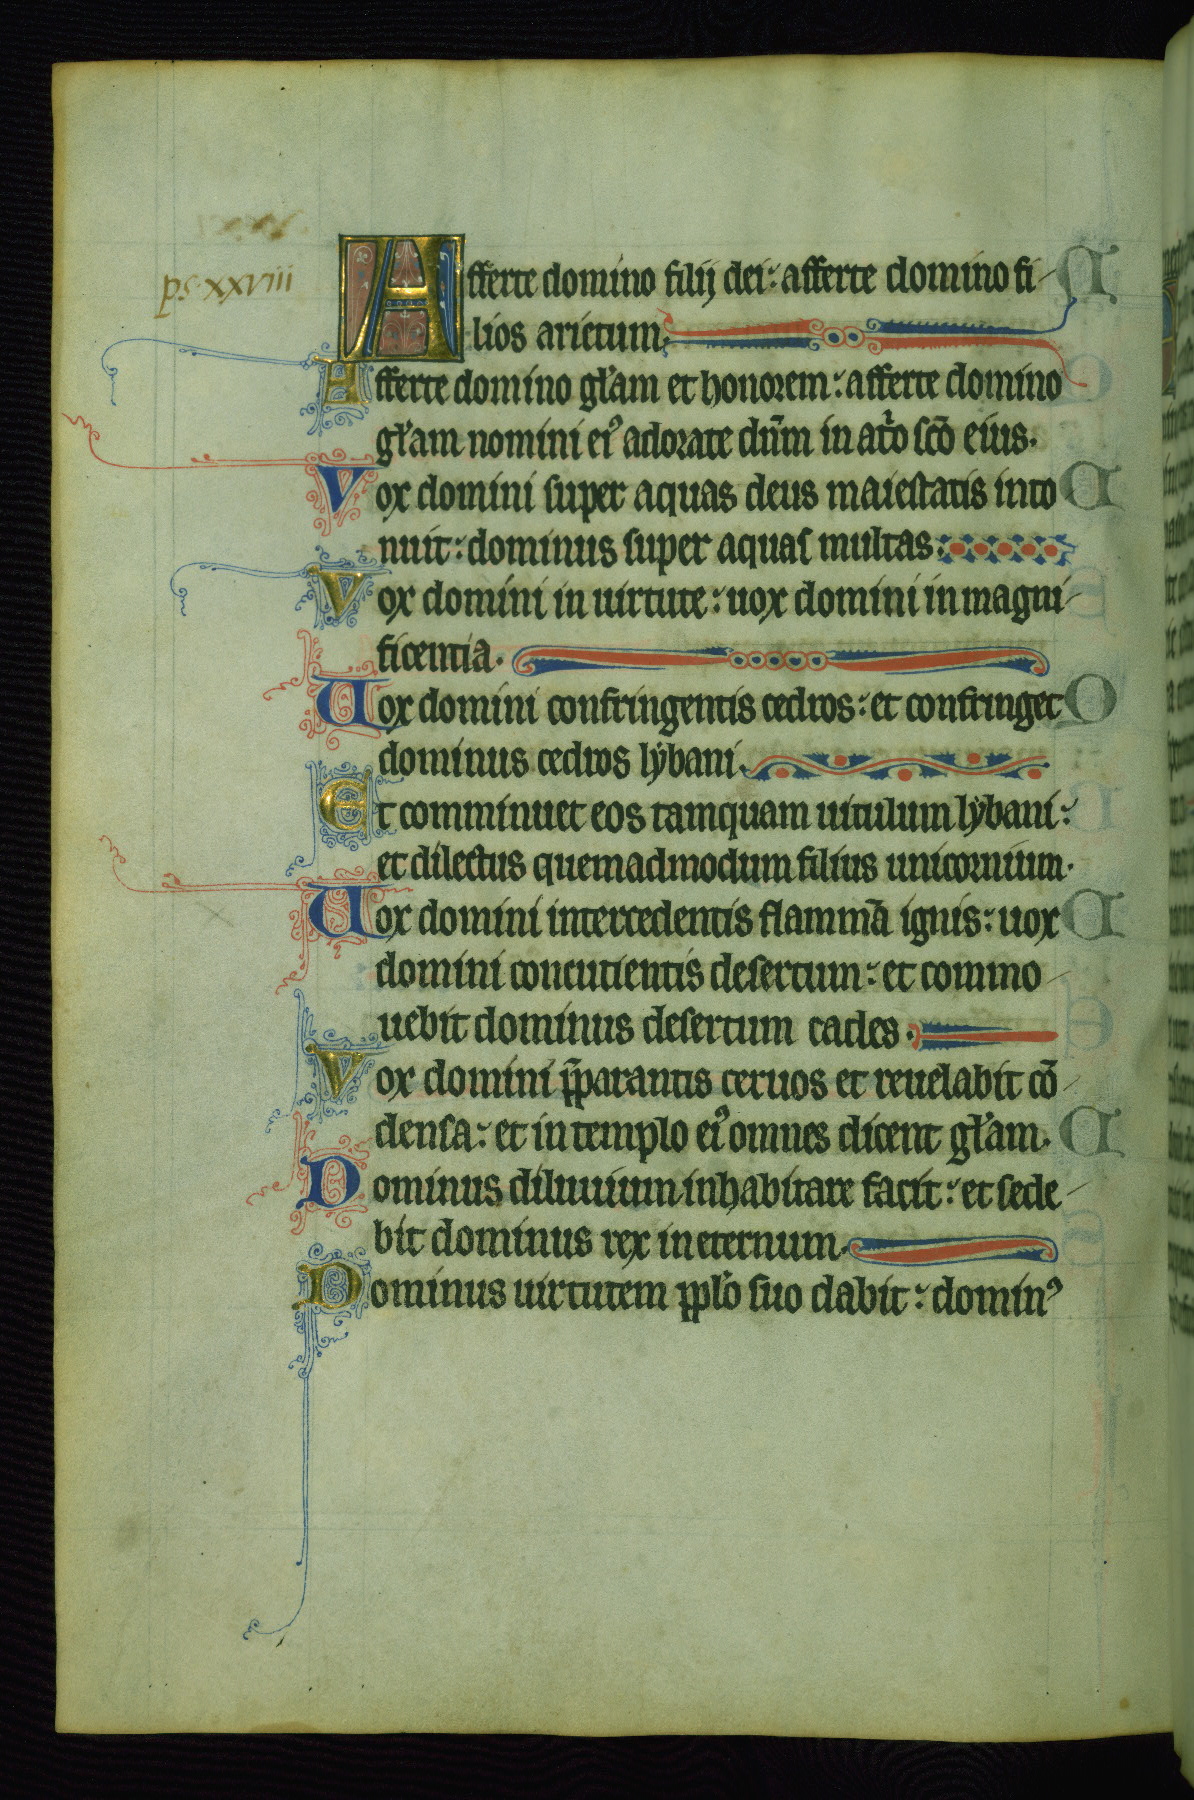 ps. xxviii
Afferte domino filij dei: afferte domino fi-
lios arietum.
Afferte domino gl'am et honorem: afferte domino
gl'am nomini ei⁹ adorate dn̄m in at'o sc̄o eius.
Vox domini super aquas deus maiestatis into
nuit: dominus super aquas multas:
Vox domini in uirtute: uox domini in magni-
ficentia.
Uox domini confringentis cedros: et confringet
dominus cedros lẏbani.
Et comminuet eos tamquam uitulum lẏbani:
et dilectus quemadmodum filius unicornium.
Uox domini intercedentis flammā ignis: uox
domini concutientis desertum: et commo-
uebit dominus desertum cades.
Vox domini p̄parantis ceruos et reuelabit cō-
densa: et in templo ei⁹ omnes dicent gl'am.
Dominus diluuium inhabitare facit: et sede-
bit dominus rex in eternum.
Dominus uirtutem ppl'o suo dabit: domin⁹